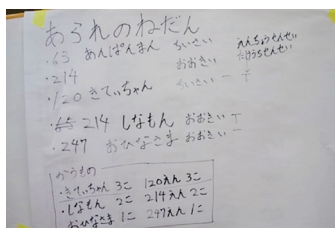 あられのねだん
・63 あんぱんまん ちいさい えんちょうせんせい
・214 おおきい たけうちせんせい
・120 きてぃちゃん ちいさい 一 下
・65 214 しなもん おおきい 下
・247 おひなさま おおきい 一
かうもの
・きてぃちゃん 3こ 120えん 3こ
・しなもん 2こ 214えん 2こ
おひなさま 1こ 247えん 1こ